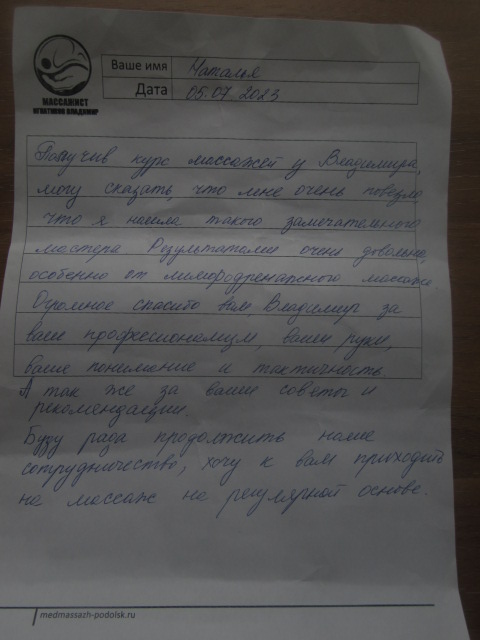 МАССАЖИСТ
ИГНАТИКОВ ВЛАДИМИР
Ваше имя Наталья
Дата 05.07.2023
Получив курс массажей у Владимира,
могу сказать, что мне очень повезло
что я нашла такого замечательного
мастера Результатами очень довольна,
особенно от лимфодренажного массажа.
Огромное спасибо вам Владимир за
ваш профессионализм, ваши руки,
ваше понимание и тактичность
А так же за ваши советы и
рекомендации.
Буду рада продолжить наше
сотрудничество, хочу к вам приходить
на массаж на регулярной основе.
medmassazh-podolsk.ru